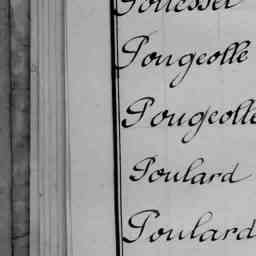 Pougeolle
Pougeolle
Poulard
Poulard